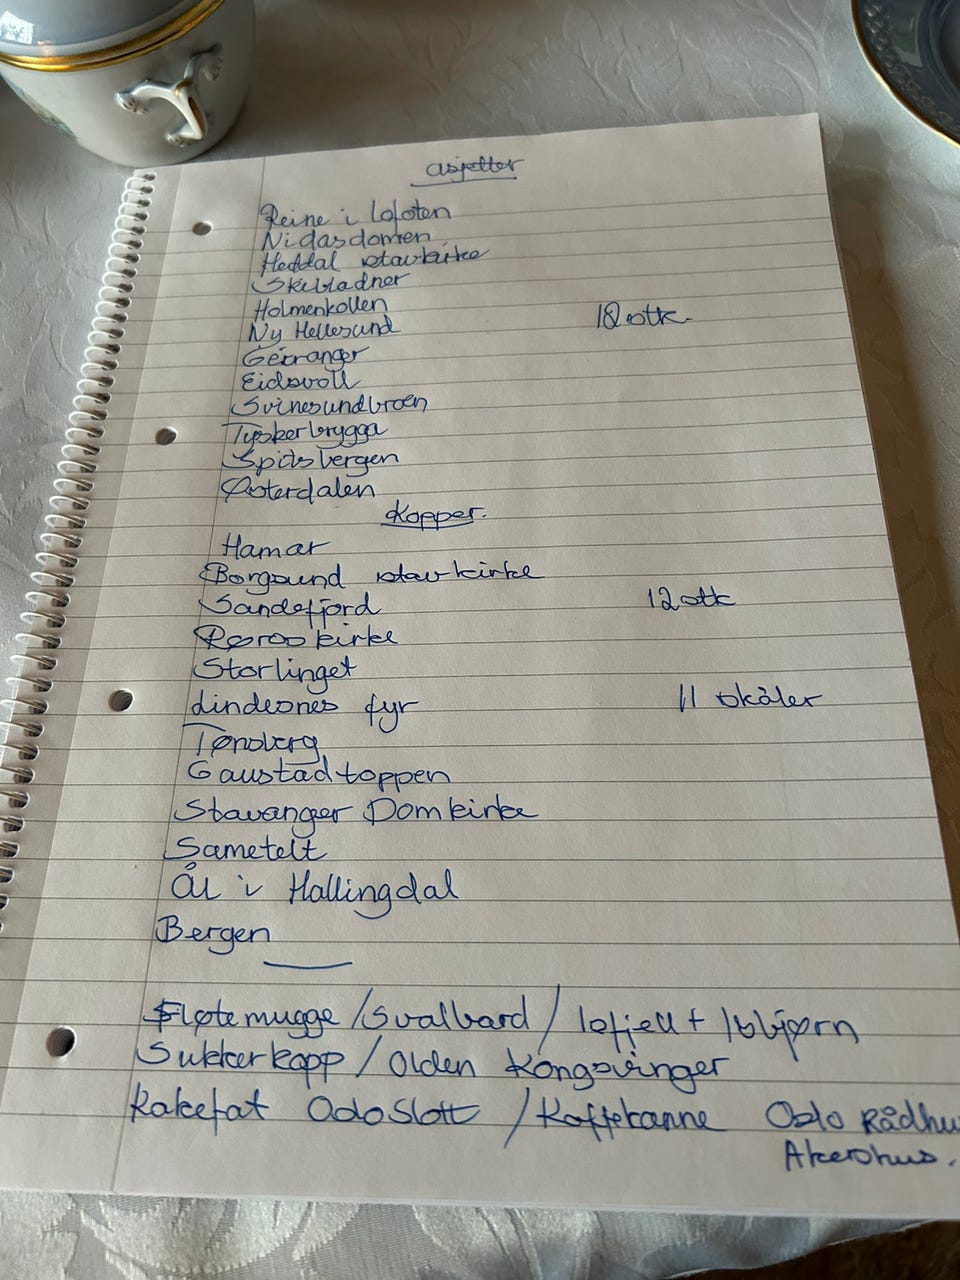 asjetter
Reine i Lofoten
Nidasdomen
Heddal stavkirke
Skibladner
Holmenkollen
Ny Hellesund 12 stk.
Geiranger
Eidsvoll
Svinesundbroen
Tyskerbrygga
Spitsbergen
Østerdalen
Kopper.
Hamar
Borgsund stavkirke
Sandefjord 12 stk
Røros kirke
Stortinget
Lindesnes fyr 11 skåler
Tønsberg
Gaustadtoppen
Stavanger Domkirke
Sametelt
Ål i Hallingdal
Bergen
Fløtemugge / Svalbard / Isfjell + Isbjørn
Sukkerkopp / Olden Kongsvinger
Kakefat Oslo Slott / Kaffekanne Oslo Rådhu
Akershus.